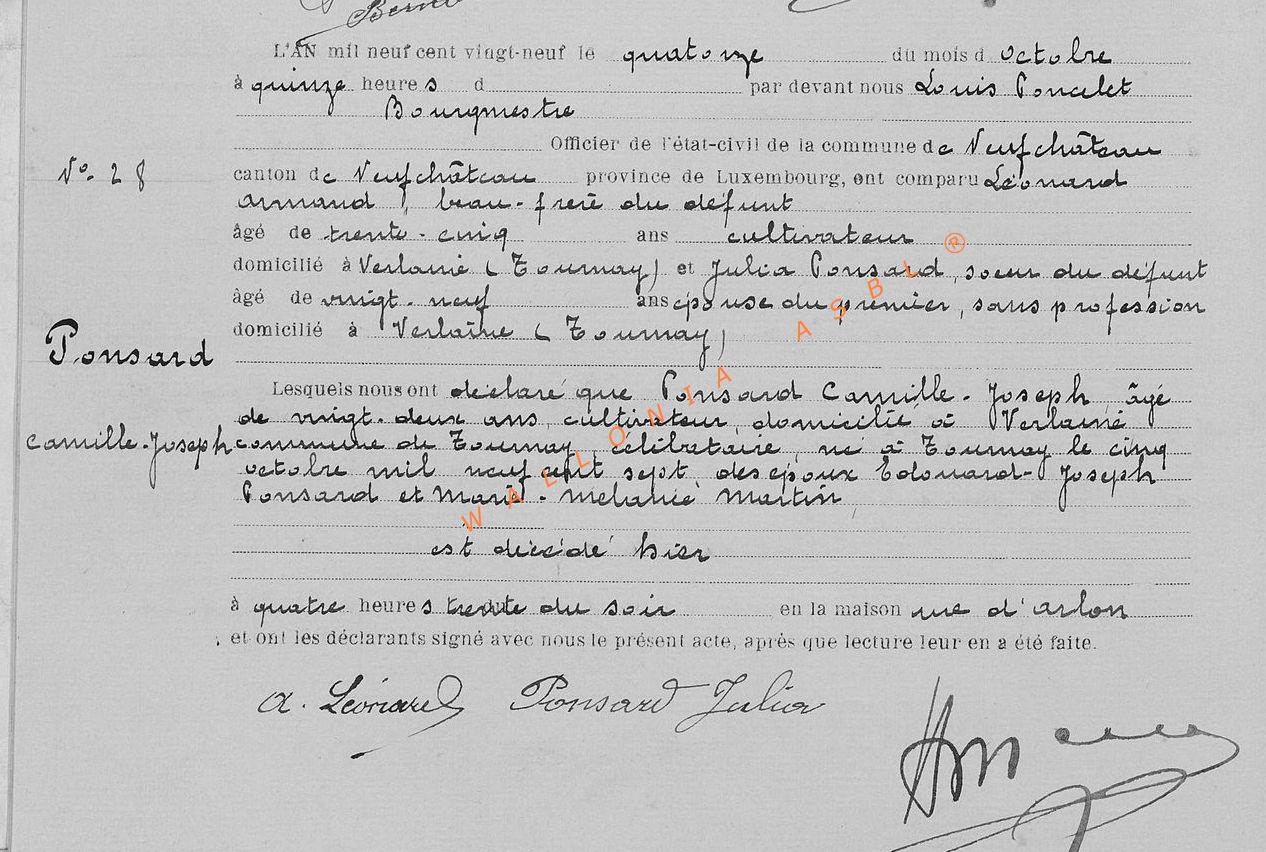 L'AN mil neuf cent vingt-neuf le quatorze du mois d octobre
à quinze heures d par devant nous Louis Poncelet
Bourgmestre
Officier de l'état-civil de la commune de Neufchâteau
N° 28
canton de Neufchâteau province de Luxembourg, ont comparu Léonard
Armand, beau-frère du défunt
âgé de trente-cinq ans cultivateur
domicilié à Verlaine (Tournay) et Julia Ponsard, soeur du défunt
âgé de vingt-neuf ans épouse du premier, sans profession
domicilié à Verlaine (Tournay)
Ponsard
Camille-Joseph
Lesquels nous ont déclaré que Ponsard Camille-Joseph, âgé
de vingt-deux ans, cultivateur, domicilié à Verlaine
commune de Tournay, célibataire, né à Tournay le cinq
octobre mil neuf cent sept, des époux Edouard-Joseph
Ponsard et Marie-Mélanie Martin,
est décédé hier
à quatre heures trente du soir en la maison rue d'Arlon
, et ont les déclarants signé avec nous le présent acte, après que lecture leur en a été faite.
A. Léonard Ponsard Julia
WALLONIA ASBL ®